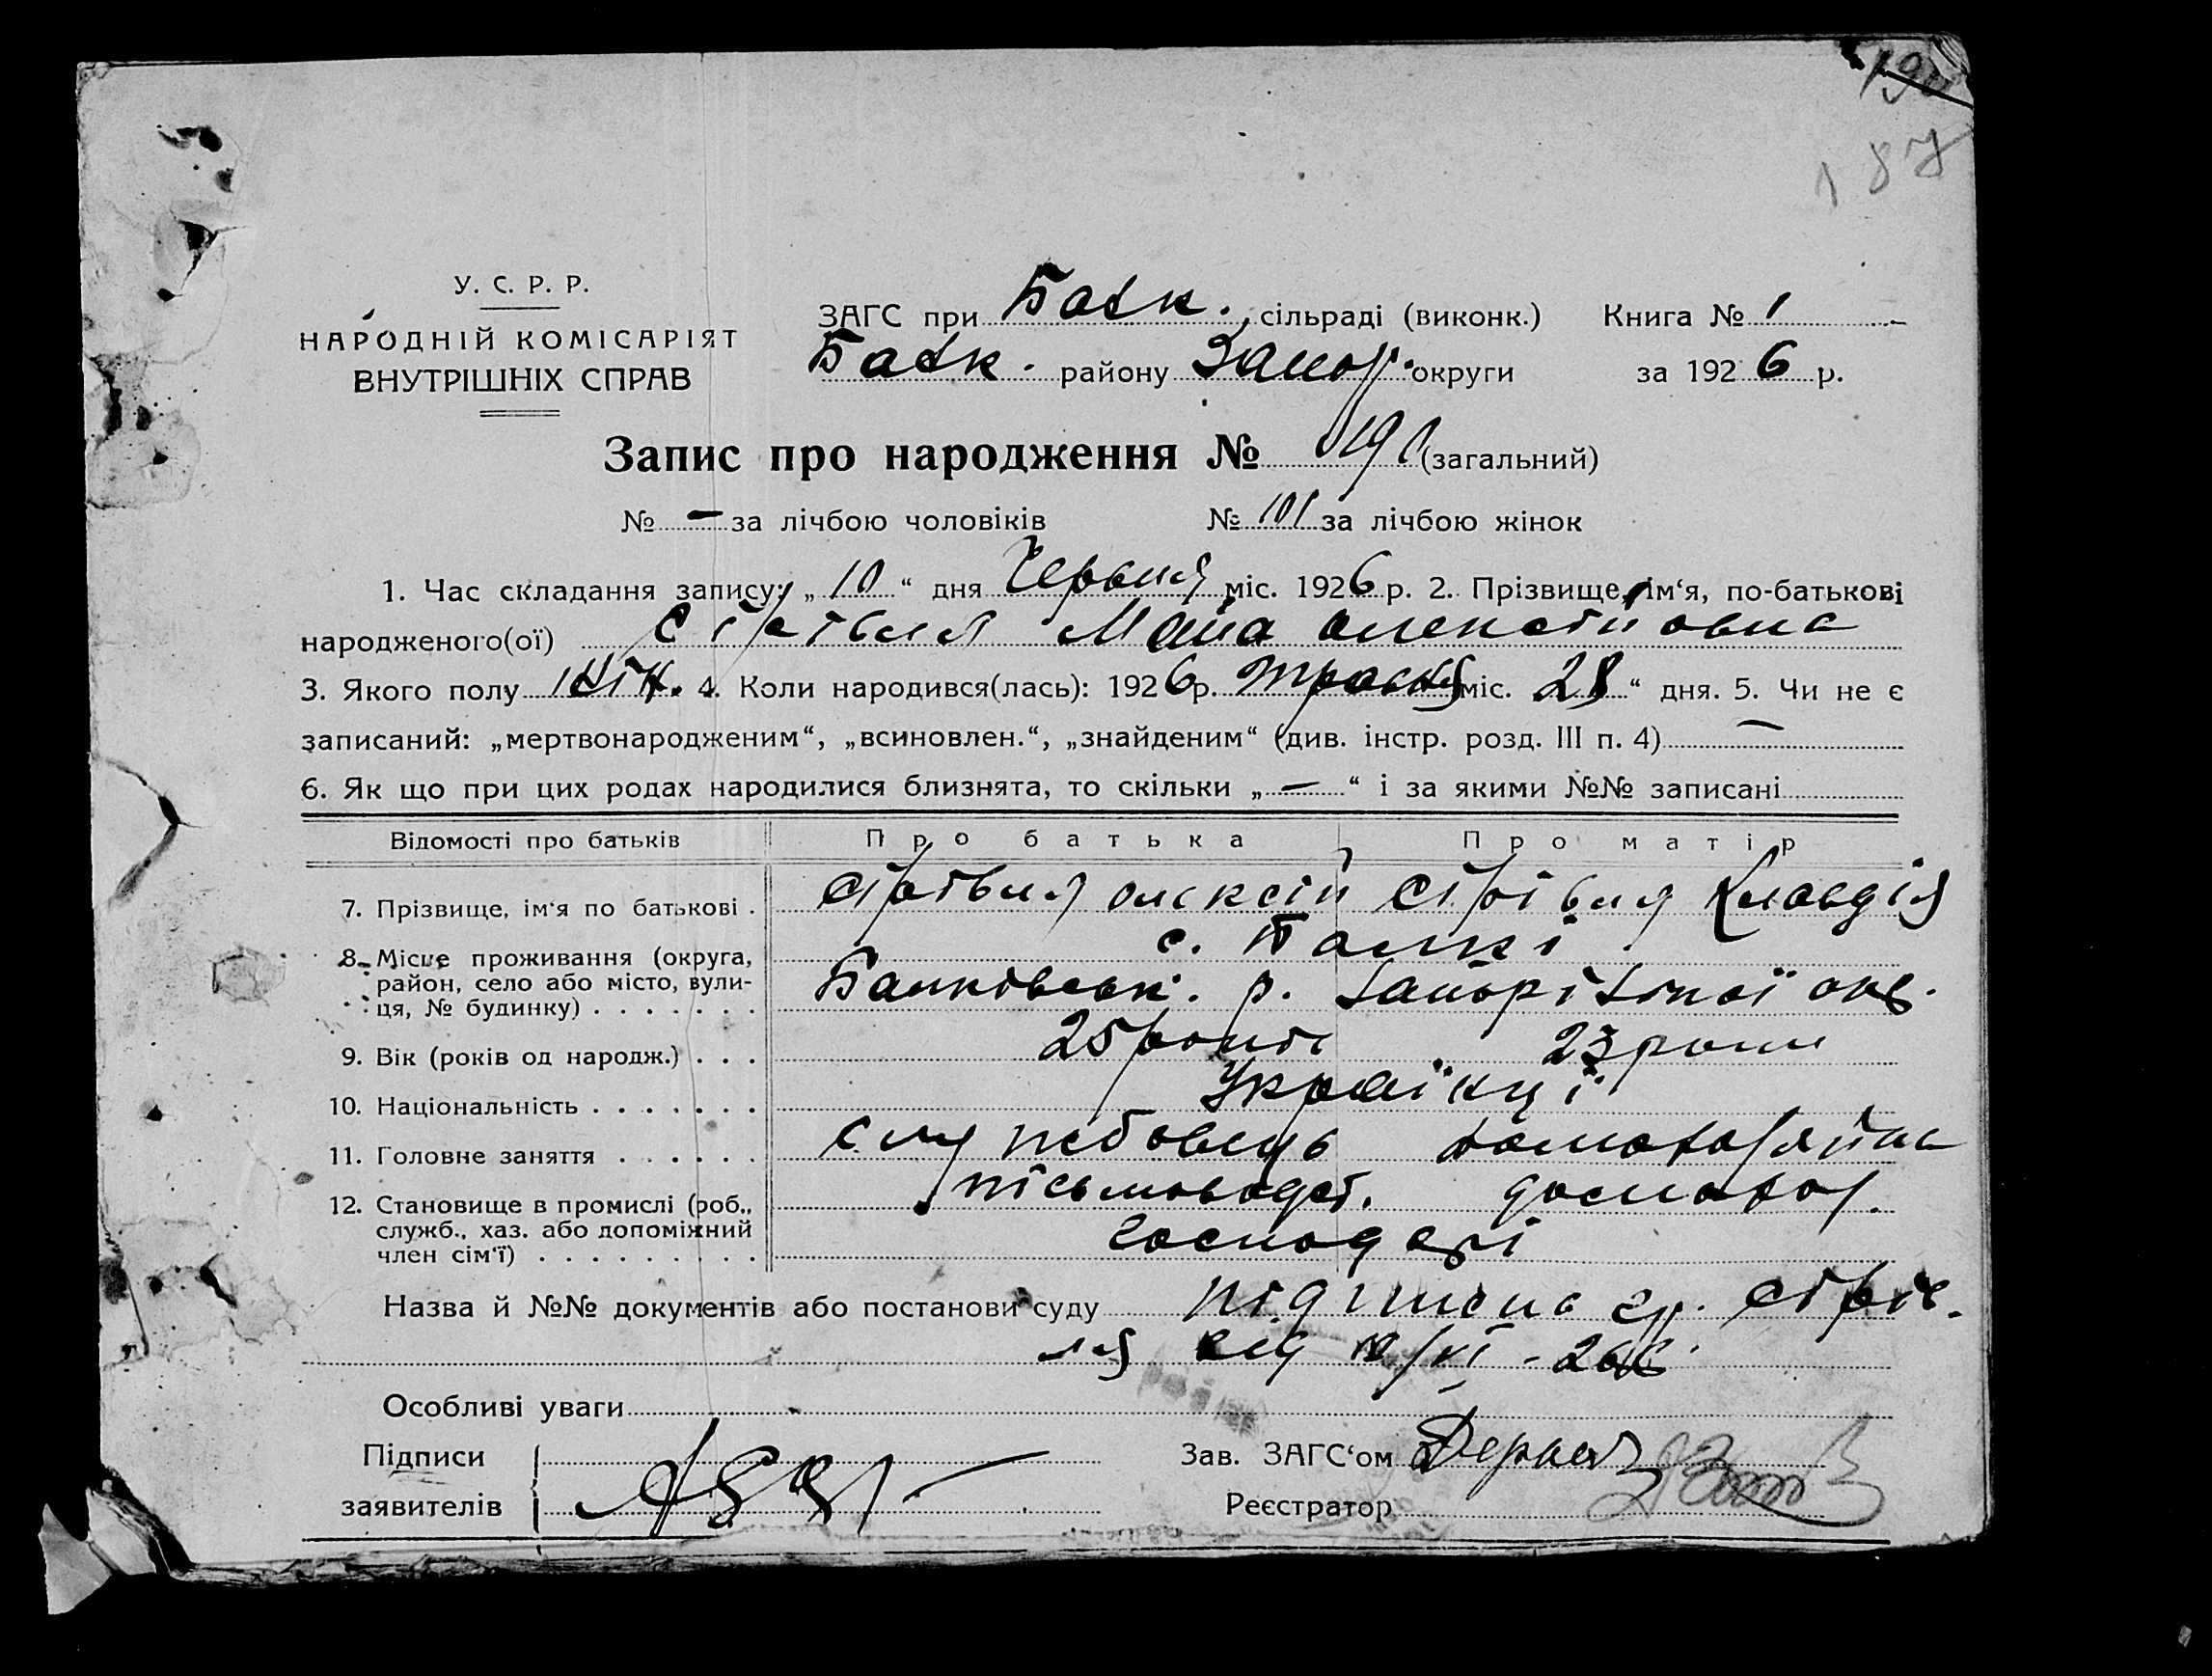 190
187
У. С. Р. Р.
НАРОДНІЙ КОМІСАРІЯТ
ВНУТРІШНІХ СПРАВ
ЗАГС при Балк. сільраді (виконк.) Книга № 1
Балк. району Запор. округи за 1926 р.
Запис про народження № 191 (загальний)
№ — за лічбою чоловіків № 101 за лічбою жінок
1. Час складання запису: „10“ дня Червня міс. 1926 р. 2. Прізвище, ім‘я, по-батькові
народженого(ої) Майа Олексіївна
3. Якого полу жін. 4. Коли народився(лась): 1926 р. травня міс. 28 “ дня. 5. Чи не є
записаний: „мертвонародженим“, „всиновлен.“, „знайденим“ (див. інстр. розд. III п. 4) —
6. Як що при цих родах народилися близнята, то скільки „—“ і за якими №№ записані
Відомості про батьків Про батька Про матір
7. Прізвище, ім‘я по батькові . Олексій Клавдія
8. Місце проживання (округа, с. Балки
район, село або місто, вули- Балківськ. р. Запоріжської окр.
ця, № будинку) . . . . . . .
9. Вік (років од народж.) . . . 25 років 23 роки
10. Національність . . . . . . . Українці
11. Головне заняття . . . . . . службовець домохазяйка
12. Становище в промислі (роб., письмовод. домохаз.
служб., хаз. або допоміжний господарі
член сім‘ї) . . . . . . . . .
Назва й №№ документів або постанови суду підписка гр.
від 10/VI - 26
Особливі уваги
Підписи Зав. ЗАГС‘ом
заявителів Реєстратор